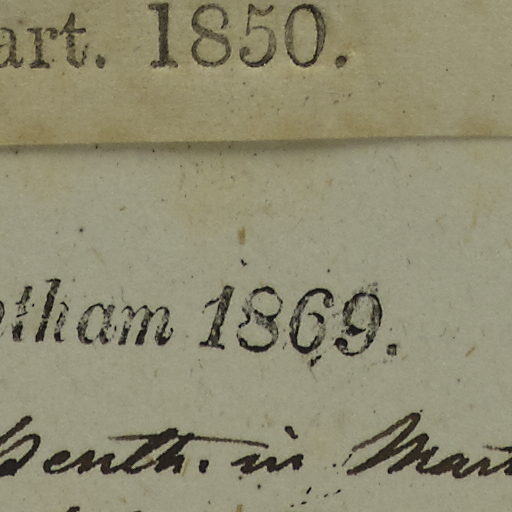 art. 1850.
tham 1869.
Benth. in Mart